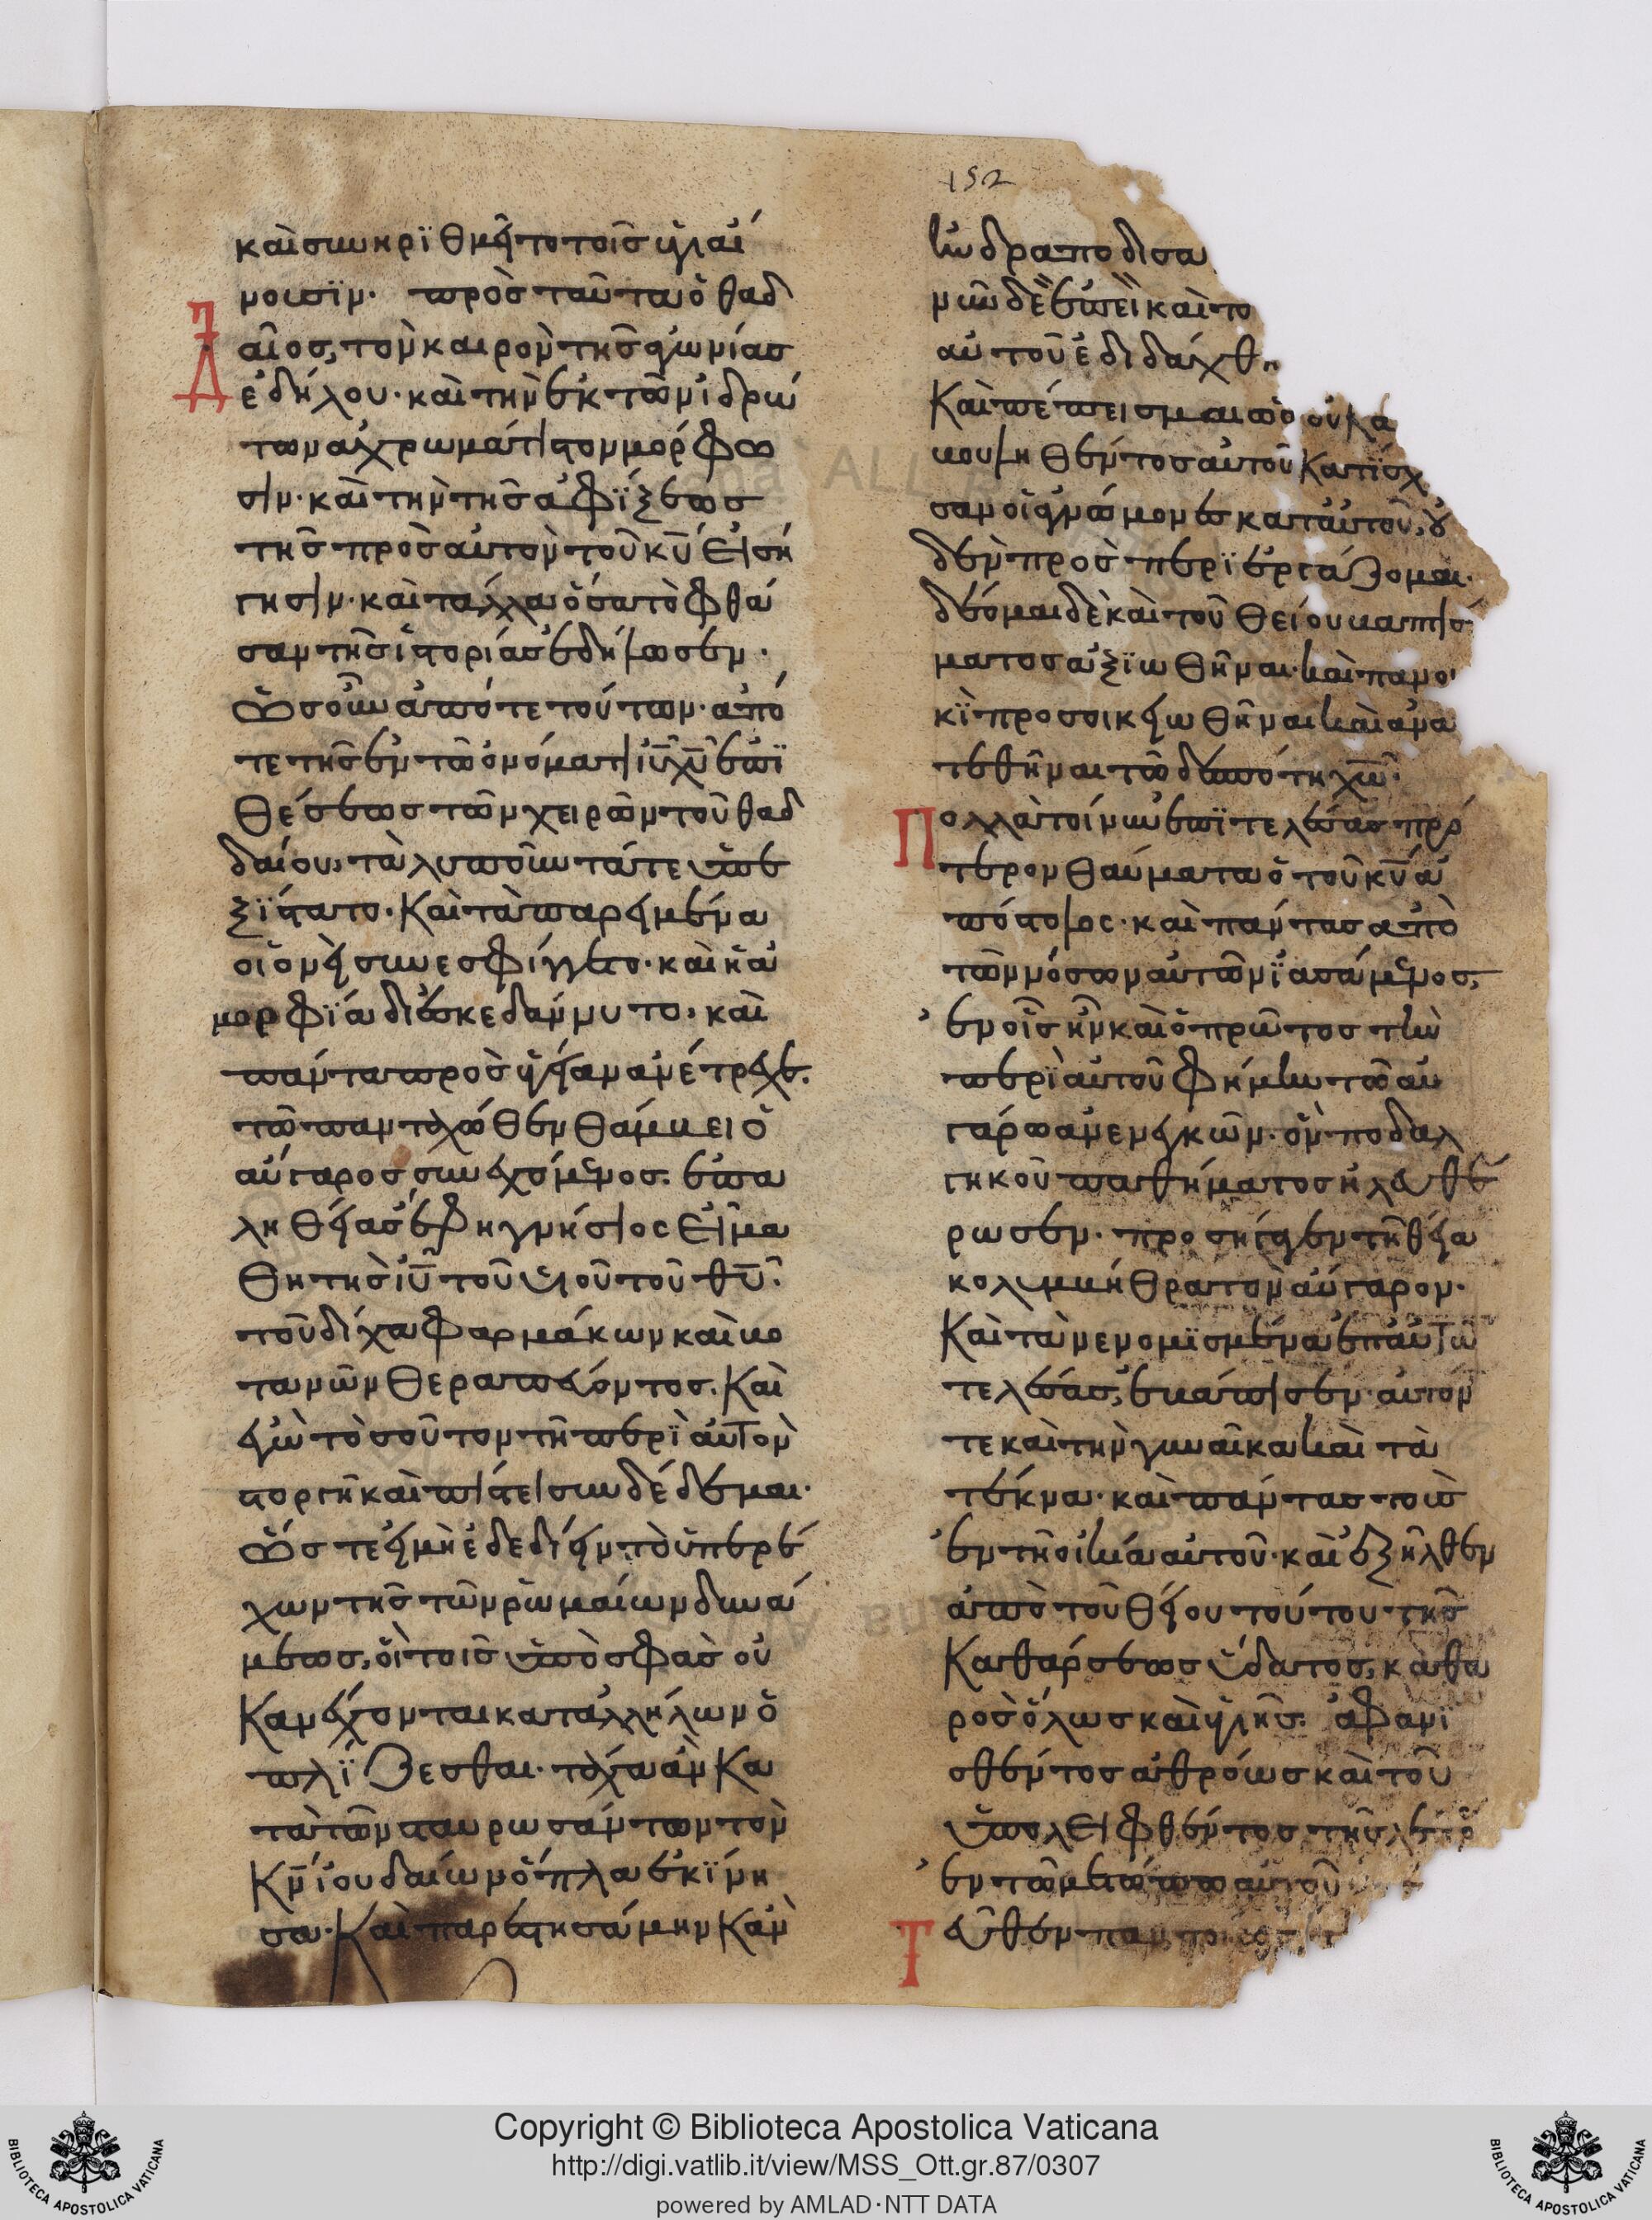 152
καὶ συνηριθμεῖτο τοῖς ὑγιαί
νουσιν. πρὸς ταῦτα ὁ θαδ
δαῖος, τὸν καιρὸν τῆς ἀγωνίας
ἐδήλου· καὶ τὴν ἐκ τῶν ἱδρώ
των ἀχρωμάτιστον μόρφω
σιν· καὶ τὴν τῆς ἀφίξεως
τῆς πρὸς αὐτὸν τοῦ κυ εἰσή
γησιν· καὶ τἄλλα ὅσα τὸ φθά
σαν τῆς ἱστορίας ἐδήλωσεν·
Ὡς οὖν ἀπό τε τούτων· ἀπό
τε τῆς ἐν τῶ ὀνόματι ιυ χυ ἐπι
θέσεως τῶν χειρῶν τοῦ θαδ
δαίου, τὰ λυποῦντά τε ὑπε
ξίστατο· Καὶ τὰ παρειμένα
οἱονεὶ συνεσφίγγετο· καὶ ἡ ἀ
μορφία διεσκεδάννυτο· καὶ
πάντα πρὸς ὑγείαν ἀνέτρεχε.
τῶ πανταχόθεν θάμβει ὁ
αὔγαρος συνεχόμενος. ἐπα
ληθείας ἔφη γνήσιος εἶ μα
θητὴς ιυ τοῦ υἱοῦ τοῦ θυ.
τοῦ δίχα φαρμάκων καὶ βο
τανῶν θεραπεύοντος. Καὶ
ἐγὼ τοσοῦτον τῆ περὶ αὐτὸν
στοργῆ καὶ πίστει συνδέδεμαι·
Ὥστε εἰ μὴ ἐδεδίειν τὸ ὑπερέ
χων τῆς τῶν ῥωμαίων δυνά
μεως, οἷ τοῖς ὑπὸ σφᾶς οὐ
Κανέχονται κατ' ἀλλήλων ὁ
πλίζεσθαι· τάχα ἂν Κα
τὰ τῶν σταυρωσάντων τὸν
Κν ἰουδαίων ὅπλα ἐκίνη
σα· Καὶ παρεστησάμην Κἂν
ἠνδραποδισα
νῦν δὲ ἐπεὶ καὶ το
αὐτοῦ ἐδιδάχθη
Καὶ πέπεισμαι
βουληθέντος αὐτοῦ Κατίσχ
σαν οἱ ἄνομοι κατ' αὐτοῦ, οὐ
δὲν προσπεριεργάζομαι·
δέομαι δὲ καὶ τοῦ θείου βαπτίσ
ματος ἀξιωθῆναι· καὶ πανοι
κὶ προσοικειωθῆναι καὶ ἀνα
τεθῆναι τῶ δεσπότη χω.
Πολλὰ τοίνυν ἐπιτελέσας πρό
τερον θαύματα ὁ τοῦ κυ ἀ
πόστολος· καὶ πάντας ἀπὸ
τῶν νόσων αὐτῶν ἰασάμενος,
ἐν οἷς ἦν καὶ ὁ πρῶτος τὴν
περὶ αὐτοῦ φήμην τῶ αὐ
γάρω ἀνενεγκών· ὃν ποδαλ
γικοῦ παθήματος ἠλευθέ
ρωσεν· προσῆγεν τῆ θεία
κολυμβήθρα τὸν αὔγαρον·
Καὶ τὰ νενομισμένα ἐπ' αὐτῶ
τελέσας, ἐβάπτισεν αὐτόν
τε καὶ τὴν γυναῖκα καὶ τὰ
τέκνα· καὶ πάντας τοὺς
ἐν τῆ οἰκία αὐτοῦ· καὶ ἐξῆλθεν
ἀπὸ τοῦ θείου τούτου τῆς
Καθάρσεως ὕδατος, καθα
ρὸς ὅλως καὶ ὑγιής. ἀφανι
σθέντος ἀθρόως καὶ τοῦ
ὑπολειφθέντος τῆς
ἐν τῶ μετώπω αὐτοῦ
Τεῦθεν
Copyright © Biblioteca Apostolica Vaticana
http://digi.vatlib.it/view/MSS_Ott.gr.87/0307
powered by AMLAD·NTT DATA
BIBLIOTECA APOSTOLICA VATICANA
BIBLIOTECA APOSTOLICA VATICANA